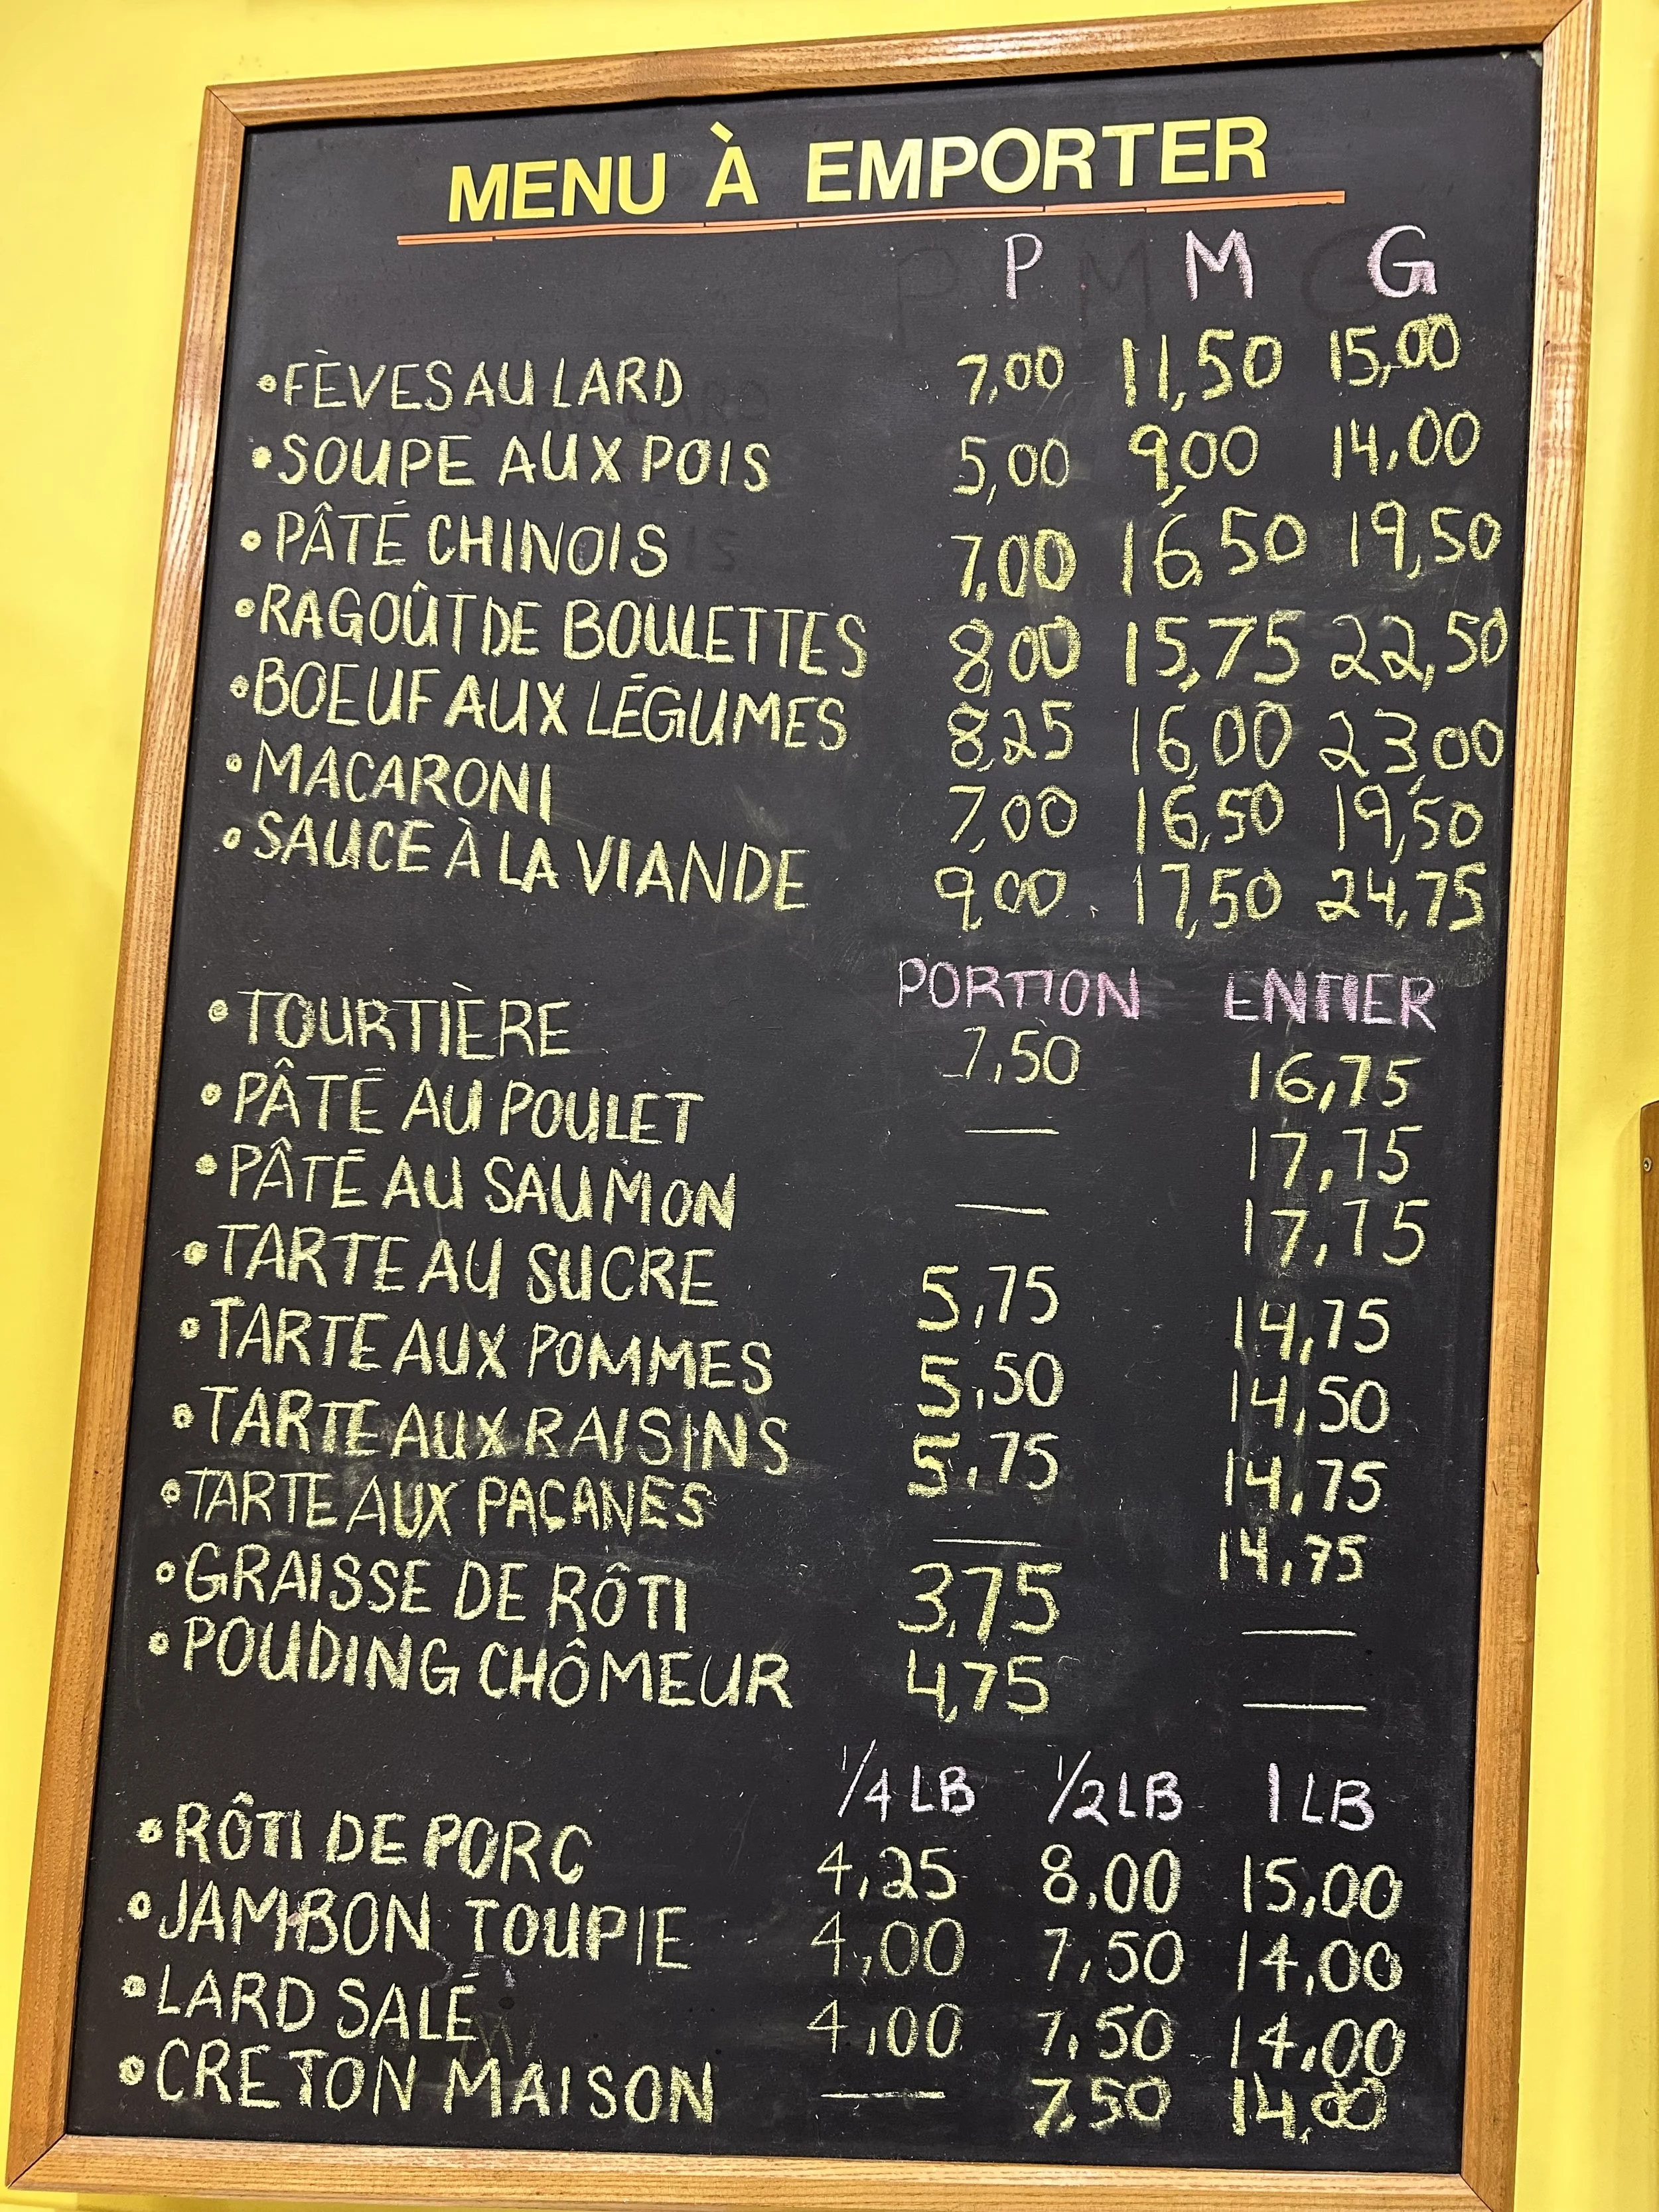 MENU À EMPORTER
P M G
•FÈVES AU LARD 7,00 11,50 15,00
•SOUPE AUX POIS 5,00 9,00 14,00
•PÂTÉ CHINOIS 7,00 16,50 19,50
•RAGOÛT DE BOULETTES 8,00 15,75 22,50
•BOEUF AUX LÉGUMES 8,25 16,00 23,00
•MACARONI 7,00 16,50 19,50
•SAUCE À LA VIANDE 9,00 17,50 24,75
PORTION ENTIER
•TOURTIÈRE 7,50 16,75
•PÂTÉ AU POULET — 17,75
•PÂTÉ AU SAUMON — 17,75
•TARTE AU SUCRE 5,75 14,75
•TARTE AUX POMMES 5,50 14,50
•TARTE AUX RAISINS 5,75 14,75
•TARTE AUX PAÇANES — 14,75
•GRAISSE DE RÔTI 3,75 —
•POUDING CHÔMEUR 4,75 —
1/4 LB 1/2 LB 1 LB
•RÔTI DE PORC 4,25 8,00 15,00
•JAMBON TOUPIE 4,00 7,50 14,00
•LARD SALÉ 4,00 7,50 14,00
•CRETON MAISON — 7,50 14,00